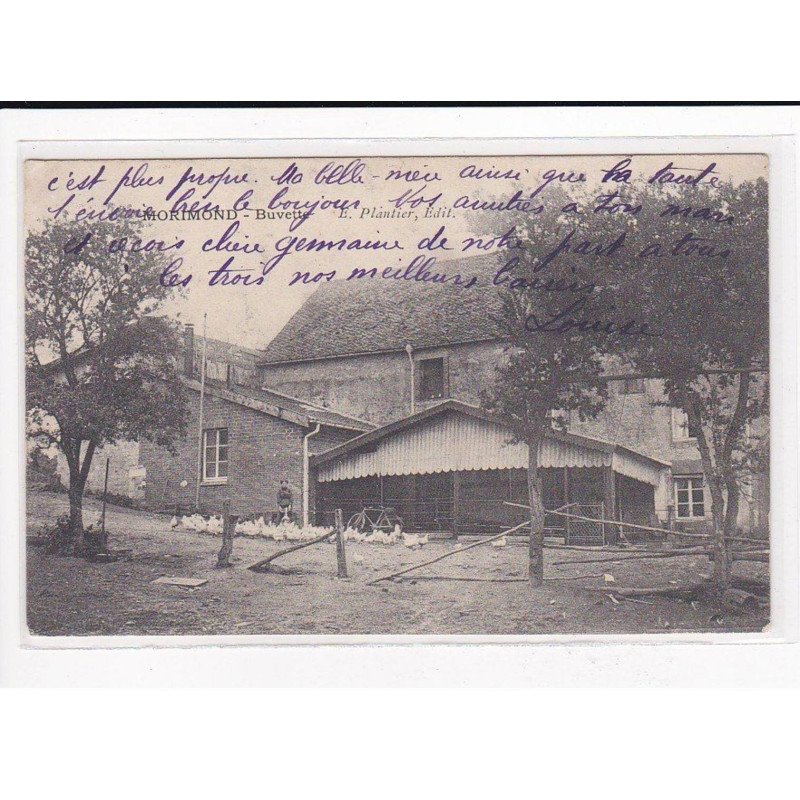 c'est plus propre. Ma belle-mère ainsi que ta tante
t'envoie le bonjour. Vos amitiés a ton mari
MORIMOND - Buvette E. Plantier, Édit.
et reçois chère germaine de notre part a tous
les trois nos meilleurs baisers
Louise